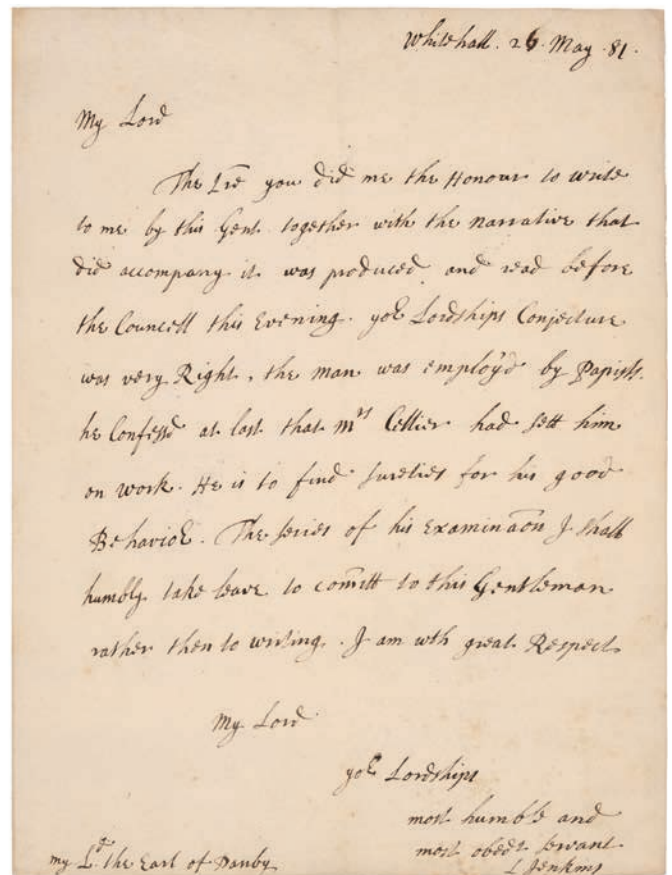 Whitehall. 26. May. 81.
My Lord
The Lr̃e you did me the Honour to write
to me by this Gent. together with the narrative that
did accompany it was produced and read before
the Councell this Evening. yoʳ Lordships Conjecture
was very Right, the man was employ'd by Papists.
he Confess'd at last that Mʳˢ Cellier had sett him
on work. He is to find sureties for his good
Behavioʳ. The series of his Examinac̃on I shall
humbly take leave to com̃itt to this Gentleman
rather then to writing. I am wth great Respect
My Lord
yoʳ Lordships
most humble and
most obedt servant
L Jenkins
my Lᵈ. the Earl of Danby